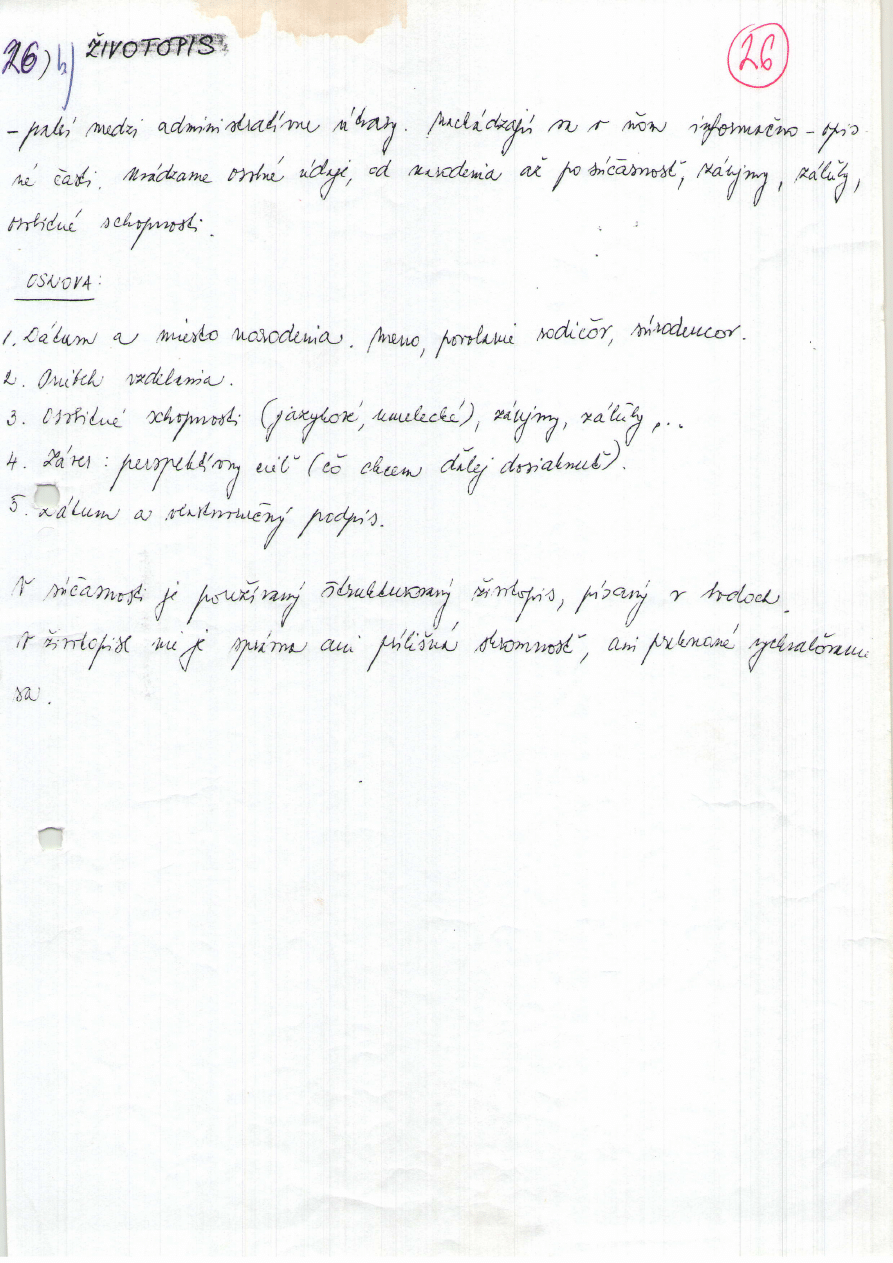 26) b) ŽIVOTOPIS
26
- patrí medzi administratívne útvary. Nachádzajú sa v ňom informačno - opis
né časti. Uvádzame osobné údaje, od narodenia až po súčasnosť, záujmy, záľuby,
osobitné schopnosti.
OSNOVA:
1. Dátum a miesto narodenia. Meno, povolanie rodičov, súrodencov.
2. Priebeh vzdelania.
3. Osobitné schopnosti (jazykové, umelecké), záujmy, záľuby,...
4. Záver: perspektívny cieľ (čo chcem ďalej dosiahnuť).
5. Dátum a vlastnoručný podpis.
V súčasnosti je používaný štrukturovaný životopis, písaný v bodoch.
V životopise nie je správna ani prílišná skromnosť, ani prehnané vychvaľovanie
sa.